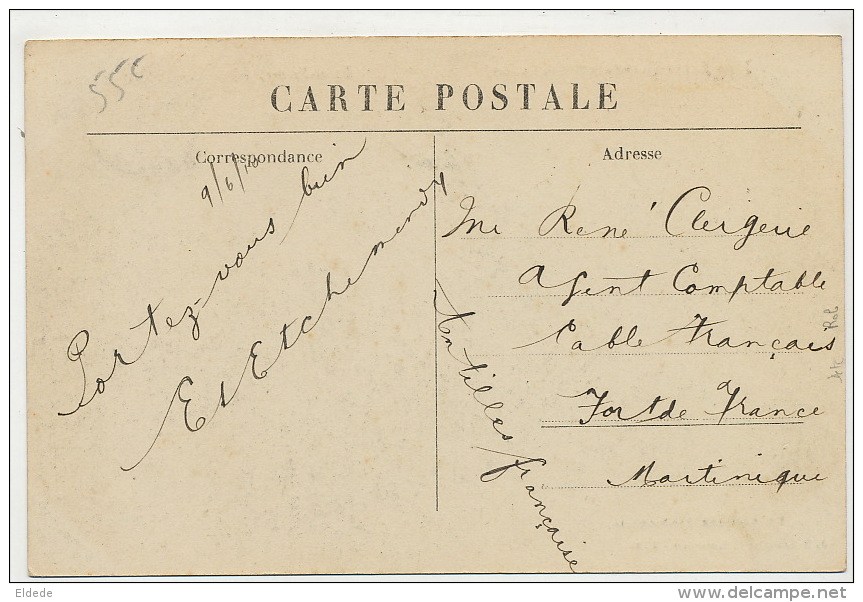 55c
CARTE POSTALE
Correspondance
Adresse
9/6/10
Portez-vous bien
Et Etchemendy
Mr René Clergerie
Agent Comptable
Cable Français
Fort de France
Martinique
Antilles française
Eldede
delcampe.net